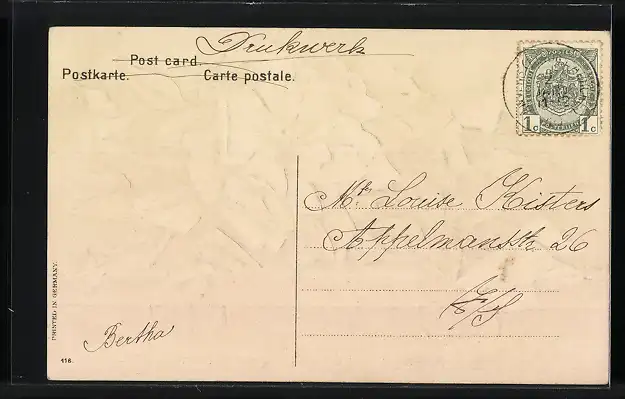 Drukwerk
Post card.
Postkarte. Carte postale.
1c 1c
Louise Kisters
Appelmansstr. 26
E/S
Bertha
PRINTED IN GERMANY.
416.